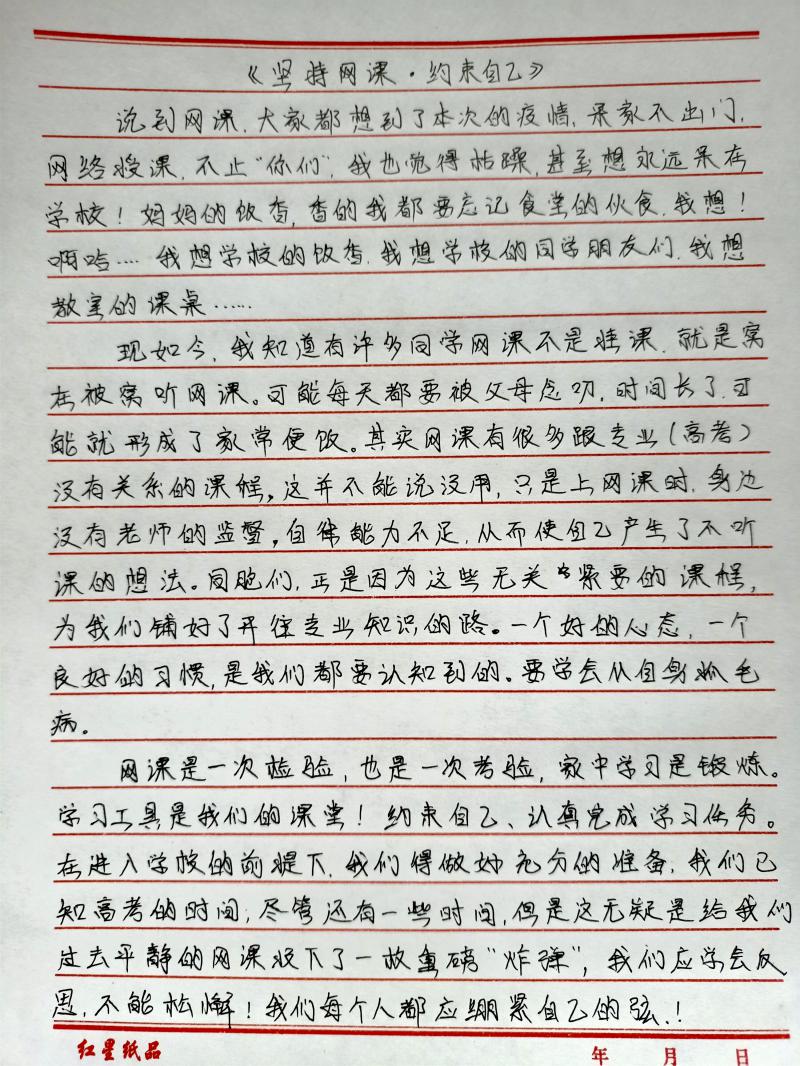 《坚持网课·约束自己》
说到网课,大家都想到了本次的疫情,呆家不出门,
网络授课,不止“你们”,我也觉得枯躁,甚至想永远呆在
学校！妈妈的饭香,香的我都要忘记食堂的伙食,我想！
啊哈…… 我想学校的饭香,我想学校的同学朋友们,我想
教室的课桌……
现如今,我知道有许多同学网课不是挂课,就是窝
在被窝听网课。可能每天都要被父母念叨,时间长了,可
能就形成了家常便饭。其实网课有很多跟专业(高考)
没有关系的课程,这并不能说没用,只是上网课时,身边
没有老师的监督,自律能力不足,从而使自己产生了不听
课的想法。同胞们,正是因为这些无关紧要的课程,
为我们铺好了开往专业知识的路。一个好的心态,一个
良好的习惯,是我们都要认知到的。要学会从自身抓毛
病。
网课是一次检验,也是一次考验,家中学习是锻炼。
学习工具是我们的课堂！约束自己、认真完成学习任务。
在进入学校的前提下,我们得做好充分的准备,我们已
知高考的时间;尽管还有一些时间,但是这无疑是给我们
过去平静的网课投下了一枚重磅“炸弹”,我们应学会反
思,不能松懈！我们每个人都应绷紧自己的弦！
红星纸品 年 月 日